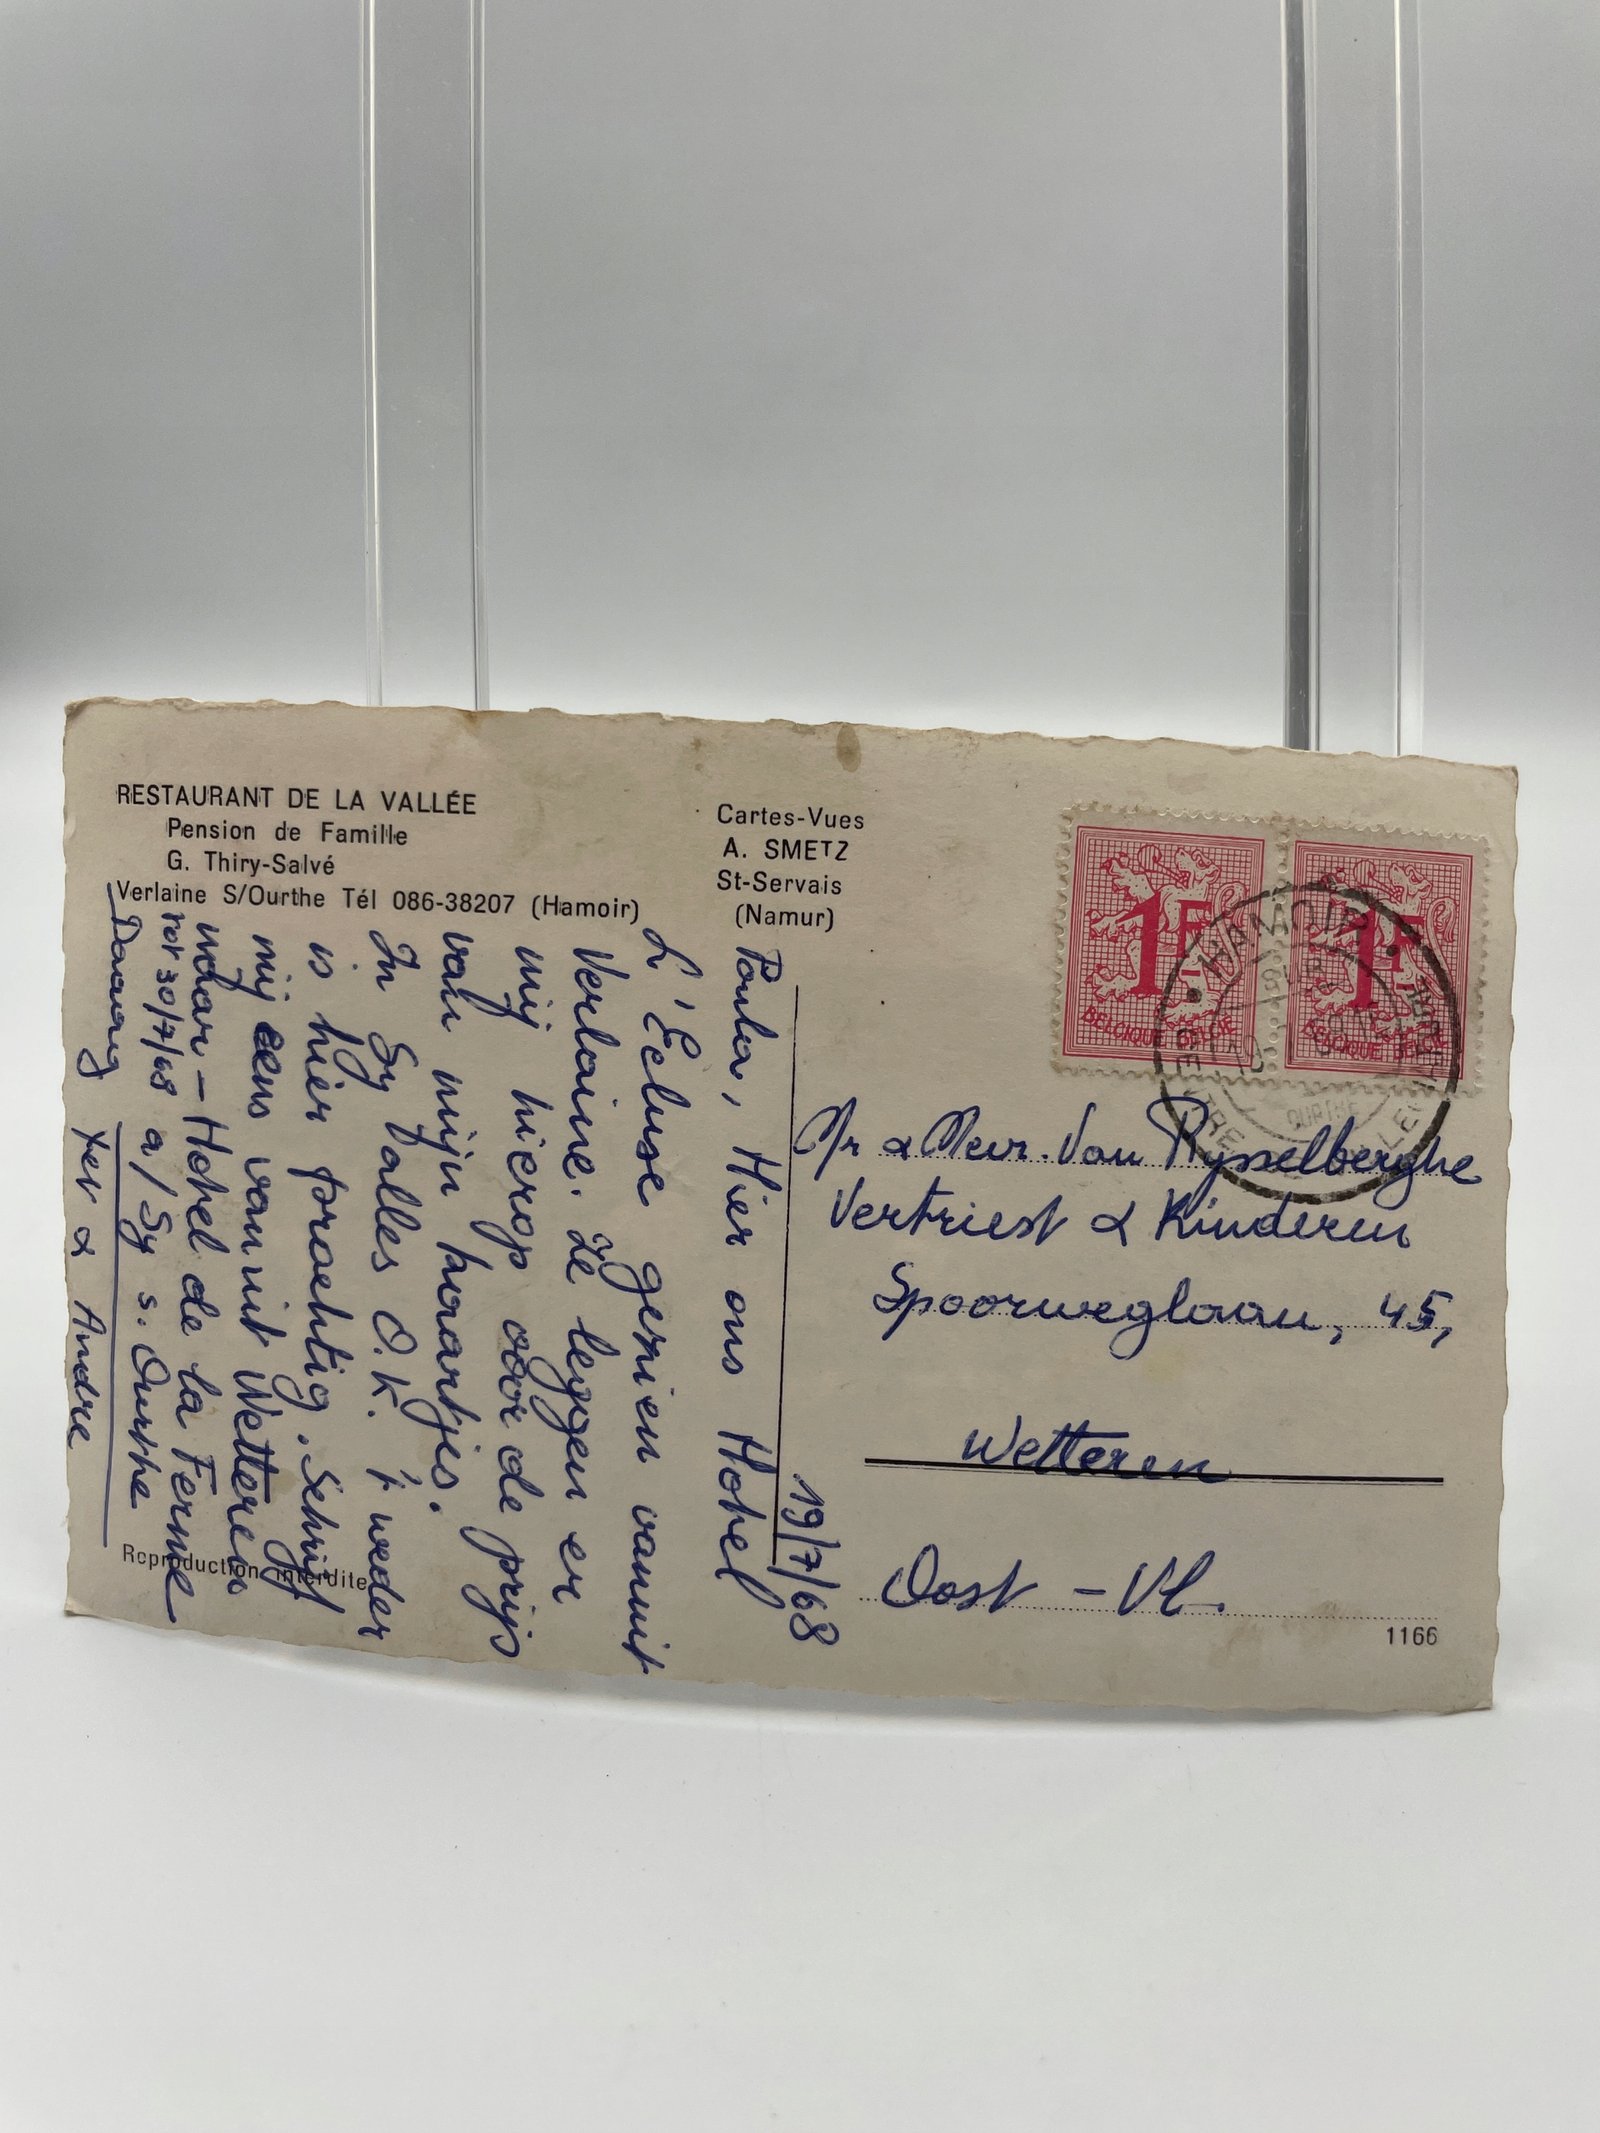 RESTAURANT DE LA VALLÉE
Pension de Famille
G. Thiry-Salvé
Verlaine S/Ourthe Tél 086-38207 (Hamoir)
Cartes-Vues
A. SMETZ
St-Servais
(Namur)
1F
BELGIQUE BELGIE
1F
BELGIQUE BELGIE
HAMOIR
OURTHE
19/7/68
Paula, Hier ons Hotel
L'Écluse gezien vanuit
Verlaine. Ze leggen er
mij hierop voor de prijs
van mijn kaartjes.
In Sy alles O.K. 't weder
is hier prachtig. Schrijf
mij eens vanuit Wetteren
naar – Hotel de la Ferme
tot 30/7/68 a/ Sy s. Ourthe
Daaag xer & Andre
Mr & Mevr. Van Rysselberghe
Vertriest & Kinderen
Spoorweglaan, 45,
Wetteren
Oost - Vl.
Reproduction interdite
1166